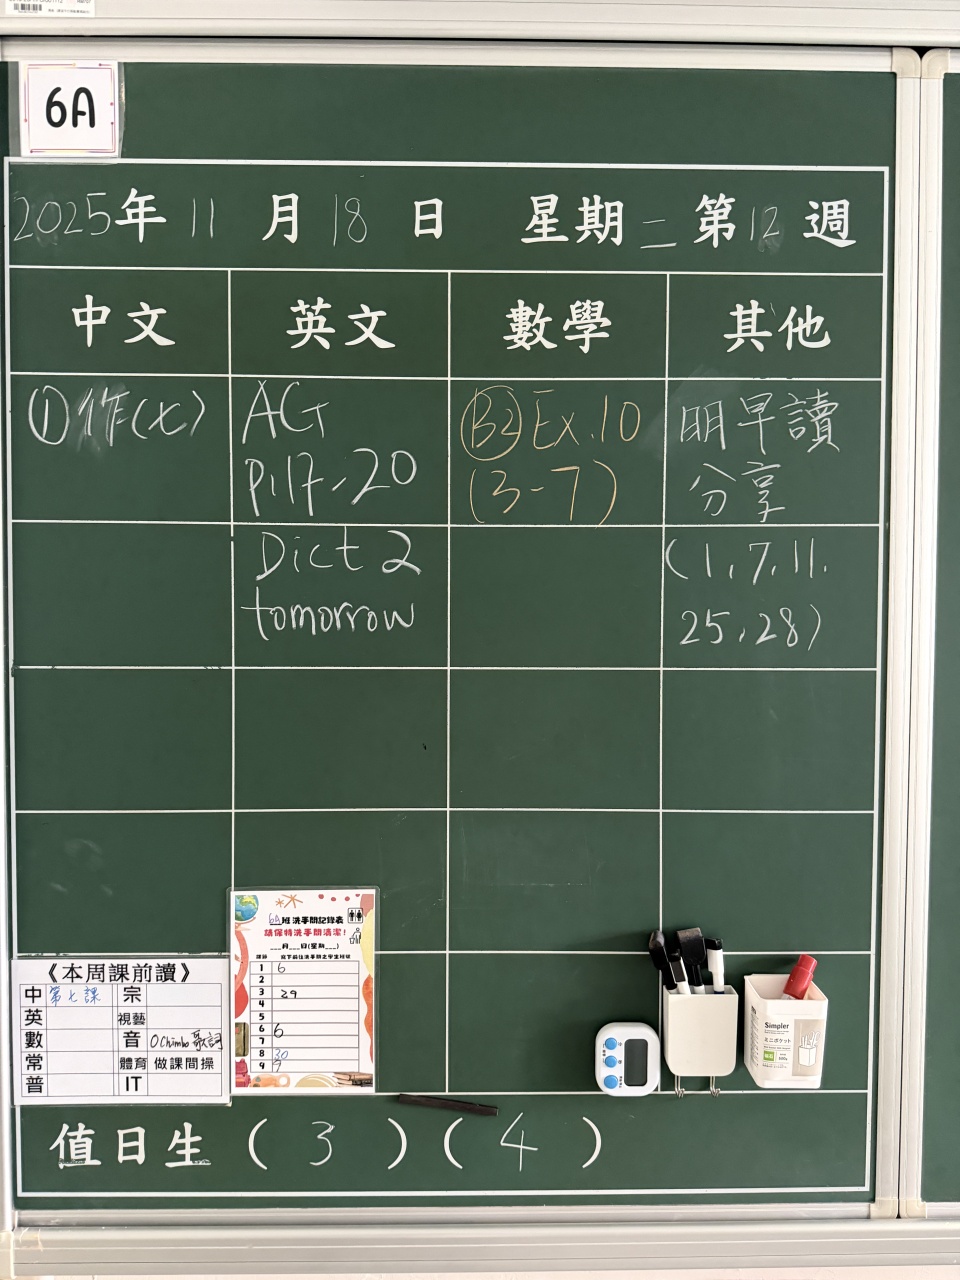 6A
2025年 11 月 18 日 星期二 第12週
中文 英文 數學 其他
①作(七)
AG
P.17-20
Dict 2
tomorrow
B2 Ex.10
(3-7)
明早讀
分享
(1、7、11、
25、28)
《本周課前讀》
中 第七課 宗
英 視藝
數 音 O Chimbo 歌詞
常 體育 做課間操
普 IT
6A班洗手間記錄表
請保持洗手間清潔!
___月___日(星期___)
1 6
2
3 29
4
5
6 6
7
8 30
9 9
Simpler
ミニポケット
值日生 ( 3 ) ( 4 )